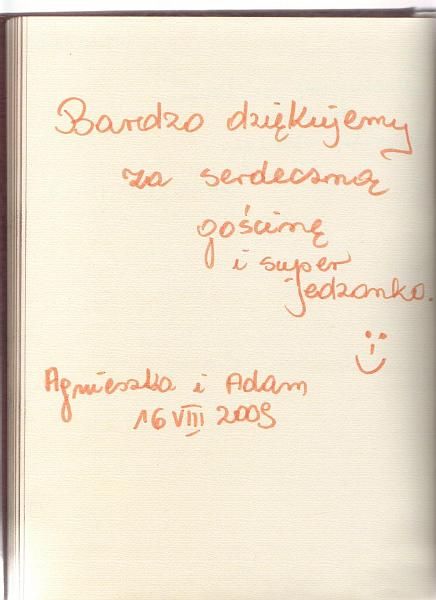 Bardzo dziękujemy
za serdeczną
gościnę
i super
jedzonko.
Agnieszka i Adam
16 VIII 2009